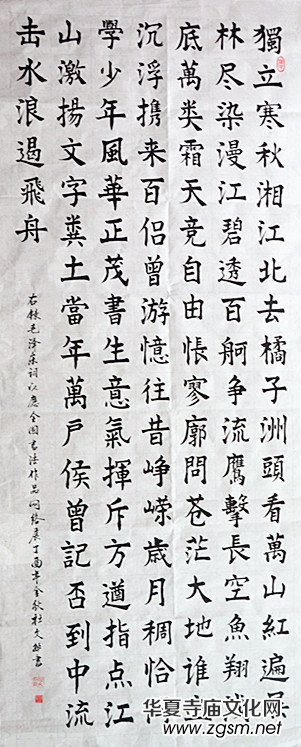 獨立寒秋湘江北去橘子洲頭看萬山紅遍层
林尽染漫江碧透百舸争流鷹擊長空魚翔浅
底萬类霜天竞自由悵寥廓問苍茫大地谁主
沉浮携来百侣曾游憶往昔峥嵘歲月稠恰同
學少年風華正茂書生意氣揮斥方遒指点江
山激揚文字糞土當年萬戶侯曾記否到中流
击水浪遏飛舟
右錄毛泽东词以應全国書法作品网络展丁酉年金秋杜文書
华夏寺庙文化网
www.zgsm.net